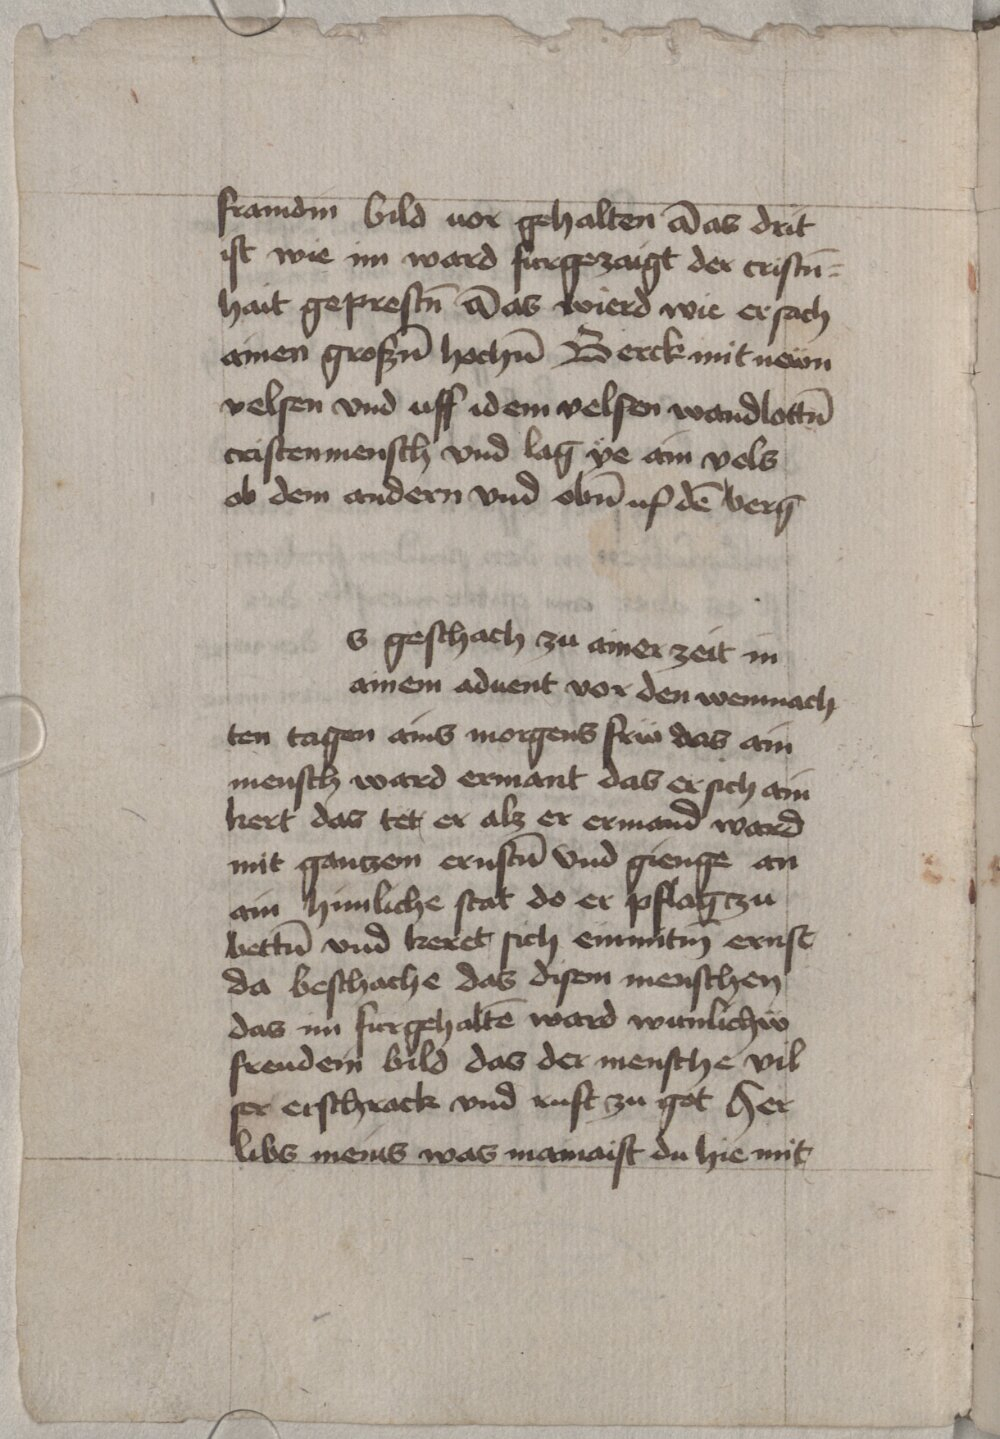 framdin bild vor gehalten Das drit
ist wie im ward furgezaigt der cristn̄=
hait geprestn̄ Das vierd wie er sach
ainen großn̄ hochn̄ Berck mit neün
velsen vnd uff idem velsen wandlottn̄
cristenmensch vnd lag ÿe ain vels
ob dem andern vnd obn̄ uf dē berg
s geschach zu ainer zeit in
ainem aduent vor den weinnach
ten tagen ains morgens frü das ain
mensch ward ermant das er sich ain
kert das tet er alz er ermand ward
mit gantzem ernstn̄ vnd gienge an
ain himliche stat do er pflag zu
bettn̄ vnd keret sich ein mit ernst
da beschache das disem menschen
das im furgehaltē ward wunlichü
freudein bild das der mensche vil
ser erschrack vnd ruft zu got Her
libs meins was mainaist du hie mit